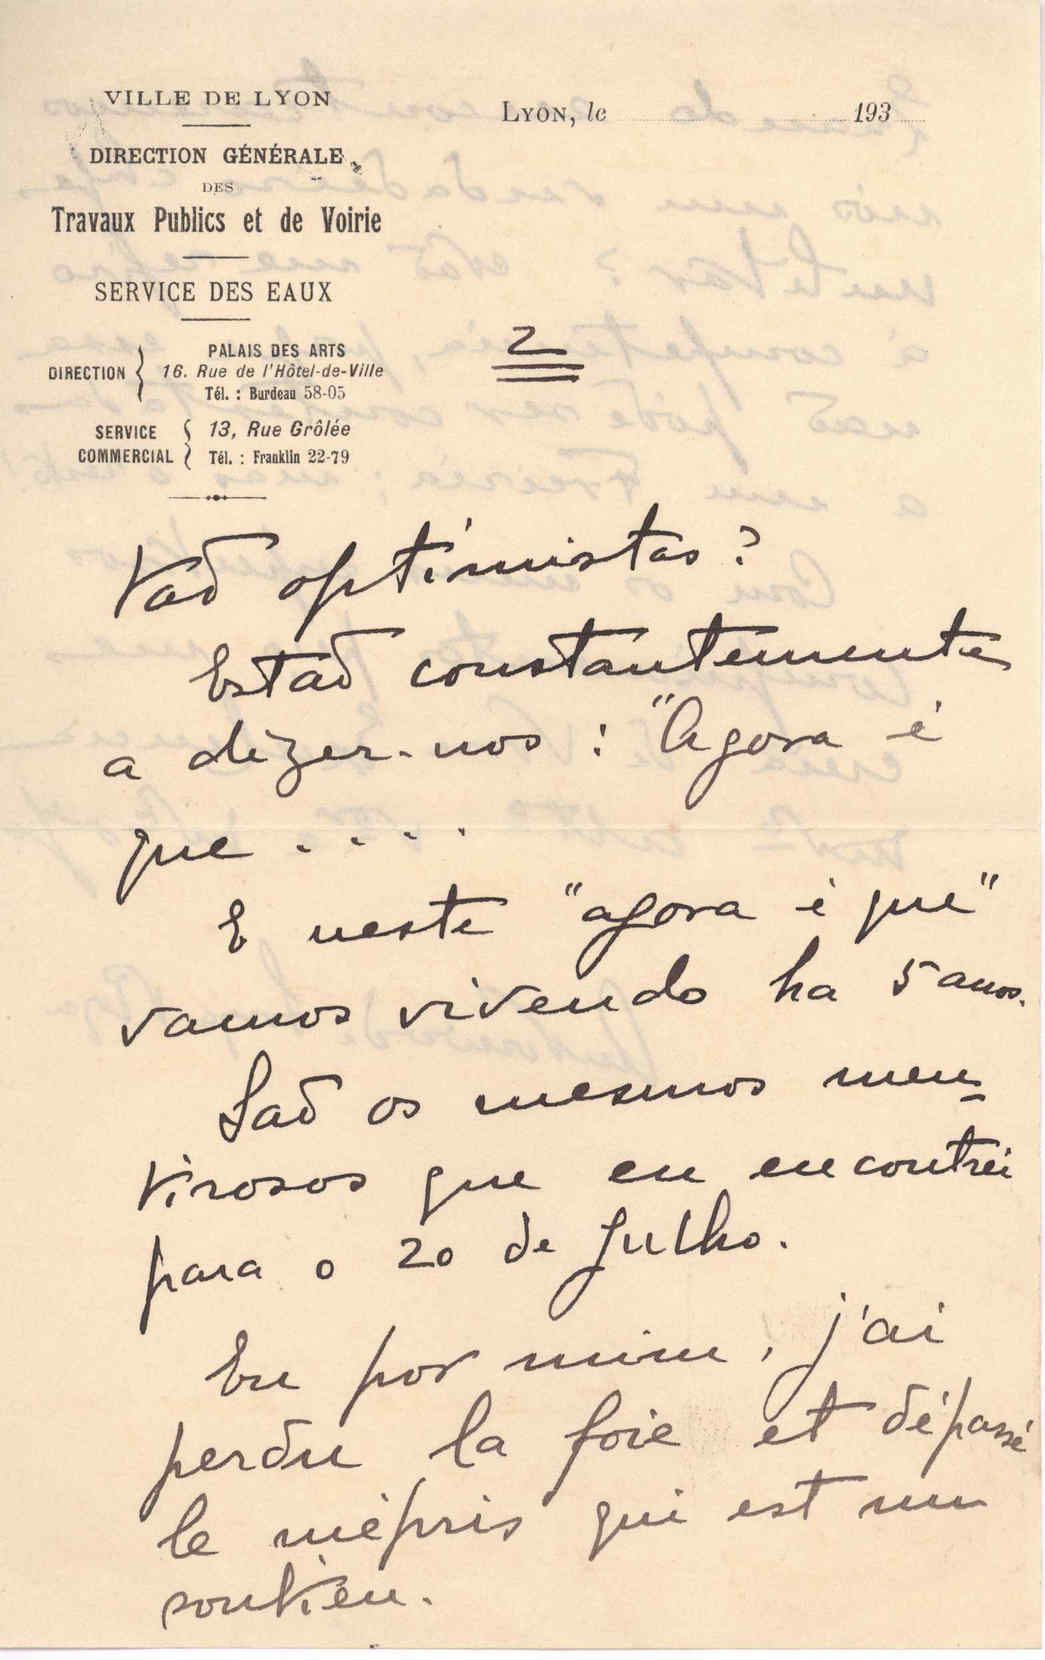 VILLE DE LYON
DIRECTION GÉNÉRALE
DES
Travaux Publics et de Voirie
SERVICE DES EAUX
DIRECTION { PALAIS DES ARTS
16. Rue de l'Hôtel-de-Ville
Tél. : Burdeau 58-05
SERVICE COMMERCIAL { 13, Rue Grôlée
Tél. : Franklin 22-79
LYON, le 193
2
Vaõ optimistas ?
Estaõ constantemente
a dizer-nos : "Agora é
que . . . .
E neste "agora é que"
vamos vivendo ha 5 anos.
Saõ os mesmos men-
tirosos que eu encontrei
para o 20 de Julho.
Eu por mim, j'ai
perdu la foie et dépassé
le mépris qui est un
soutien.